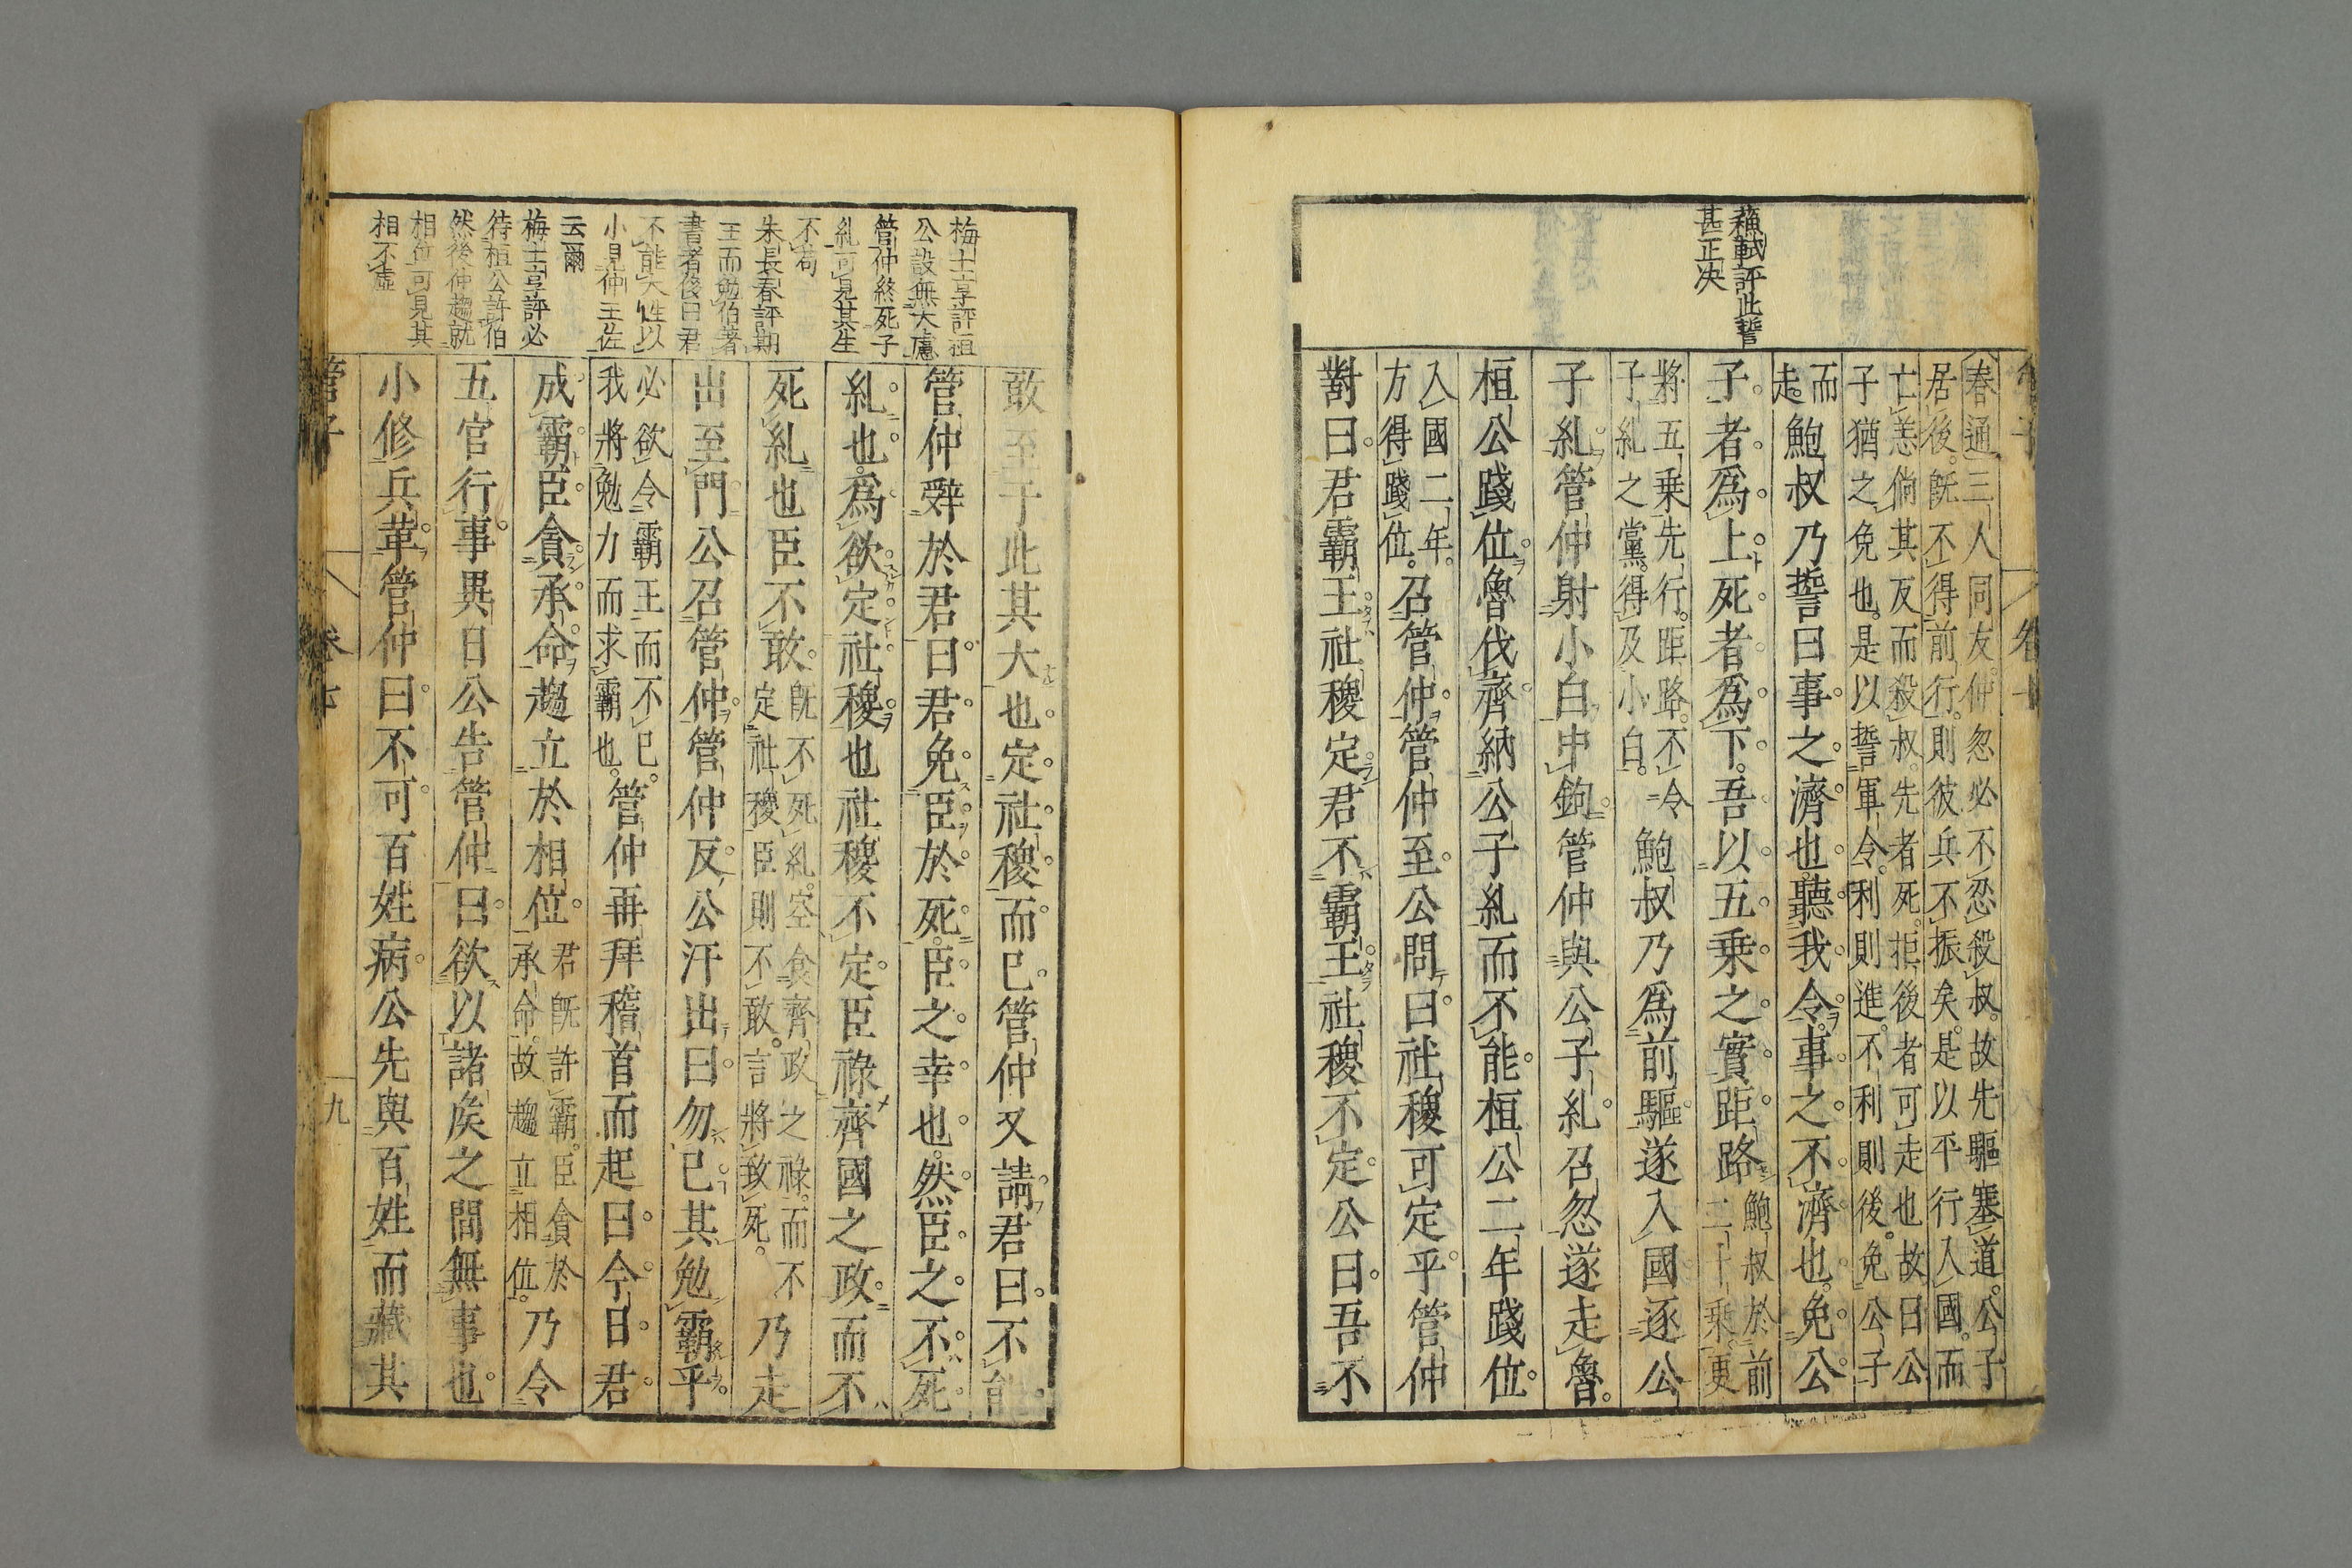 蘓軾評此誓
甚正决
春通三人同友仲忽必不忍殺叔故先驅塞道公子
居後旣不得前行則彼兵不振矣是以平行入國而
亡恙倘其反而殺叔先者死拒後者可走也故曰公
子猶之免也是以誓軍令利則進不利則後免公子
而
走鮑叔乃誓曰事之濟也聽我令事之不濟也免公
子者爲上死者爲下吾以五乗之實距路鮑叔於前
二十乗更
將五乗先行距路不令
子糺之黨得及小白鮑叔乃爲前驅遂入國逐公
子糺管仲射小白中鉤管仲與公子糺召忽遂走魯
桓公踐位魯伐齊納公子糺而不能桓公二年踐位
入國二年
方得踐位召管仲管仲至公問曰社稷可定乎管仲
對曰君霸王社稷定君不霸王社稷不定公曰吾不
梅士享評桓
公設無大慮
管仲終死子
糺可見其生
不苟
朱長春評期
王而勉伯著
書者後曰君
不能大姓以
小見仲王佐
云爾
梅士享評必
待桓公許伯
然後仲趨就
相位可見其
相不虛
敢至于此其大也定社稷而已管仲又請君曰不能
管仲辤於君曰君免臣於死臣之幸也然臣之不死
糺也爲欲定社稷也社稷不定臣祿齊國之政而不
死糺也臣不敢旣不死糺空食齊政之祿而不
定社稷臣則不敢言將致死乃走
出至門公召管仲管仲反公汗出曰勿已其勉霸乎
必欲令霸王而不已
我將勉力而求霸也管仲再拜稽首而起曰今日君
成霸臣貪承命趨立於相位君旣許霸臣貪於
承命故趨立相位乃令
五官行事異日公告管仲曰欲以諸侯之間無事也
小修兵革管仲曰不可百姓病公先與百姓而藏其
管子
卷七
九